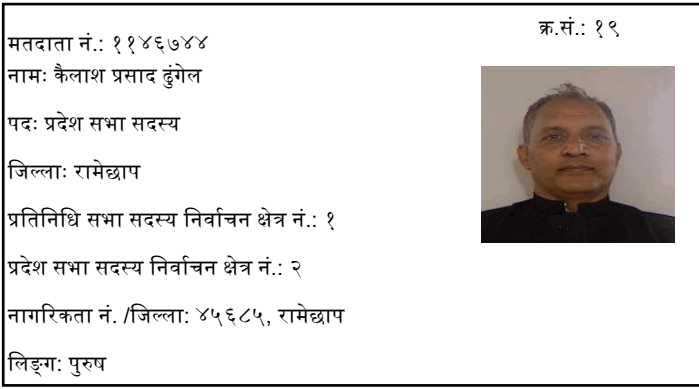 क्र.सं.: १९
मतदाता नं.: ११४६७४४
नामः कैलाश प्रसाद ढुंगेल
पदः प्रदेश सभा सदस्य
जिल्लाः रामेछाप
प्रतिनिधि सभा सदस्य निर्वाचन क्षेत्र नं.: १
प्रदेश सभा सदस्य निर्वाचन क्षेत्र नं.: २
नागरिकता नं. /जिल्ला: ४५६८५, रामेछाप
लिङ्ग: पुरुष